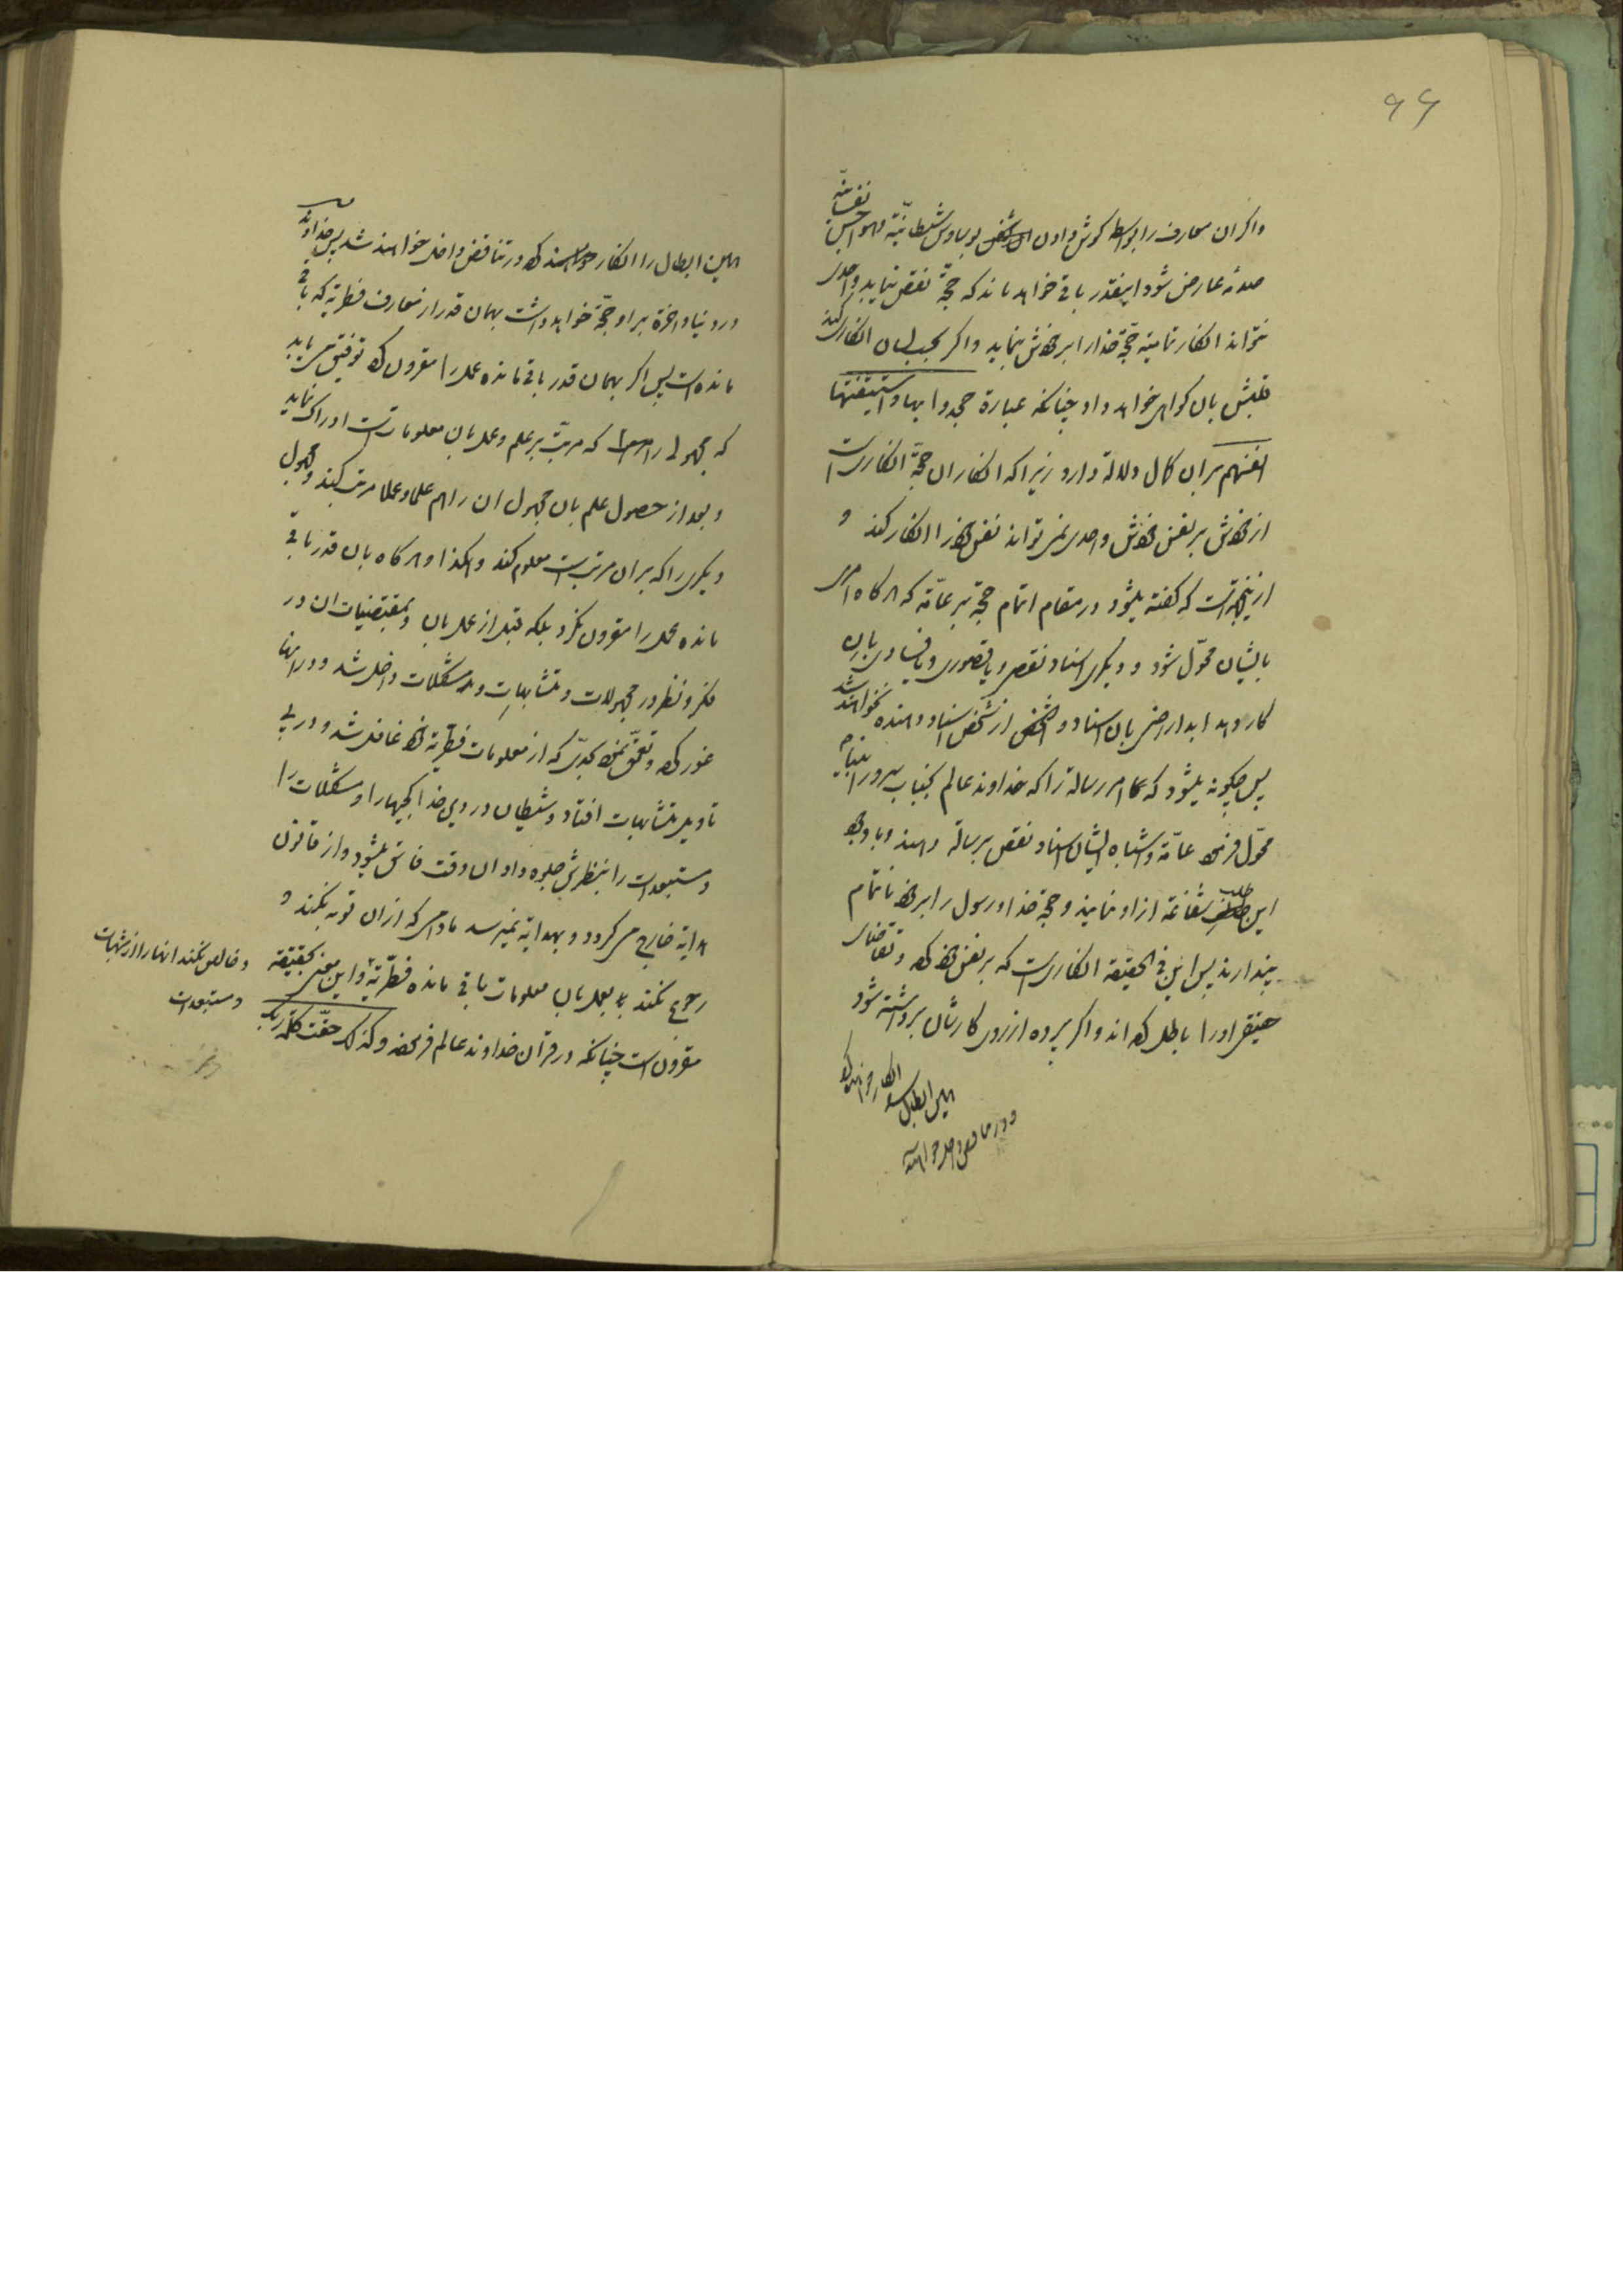 ۹۹
واکر ان معارف را بواسطه کوش دادن بوساوس شیطانیّة وهواجس نفسانیّه
صدمه عارض شود اینقدر باقی خواهد ماند که حجّة نقص ننماید واحدی
نتواند انکار تمامیّة حجّة خدا را بر خودش بنماید واکر بحسب لسان انکار کند
قلبش بان کواهی خواهد داد چنانکه عبارة جحدوا بها واستیقنتها
انفسهم بر این کمال دلالة دارد زیرا که انکار ان حجّة انکاریست
از خودش بر نفس خودش واحدی نمی تواند نفس خود را انکار کند و
از اینجهة است که کفته میشود در مقام اتمام حجّة بر عامّه که هرکاه امری
بایشان محوّل شود و دیکری اسناد نقص ویا قصوری ویا فسادی بان
کار دهد ابدا راضی بان اسناد و از شخص اسناد دهنده نخواهند شد
پس چکونه میشود که امر رسالة را که خداوند عالم بجناب سرور انبیا
محوّل فرموده عامّه واشباه ایشان اسناد نقص برسالة دهند وبا وجود
این طلب شفاعة از او نمایند وحجّة خدا ورسول را بر خود ناتمام
پندارند پس این فی الحقیقة انکاریست که بر نفس خود کرده وتقاضای
حقیقی او را باطل کرده اند واکر پرده از روی کارشان برداشته شود
همین ابطال را انکار خواهند کرد
ودر تناقض داخل خواهند شد
همین ابطال را انکار خواهند کرد ودر تناقض داخل خواهند شد پس خداوند
در دنیا واخرة بر او حجّة خواهد داشت بهمان قدر از معارف فطریّه که باقی
مانده است پس اکر بهمان قدر باقی مانده عمل را مقرون کرد توفیق می یابد
که مجهولی را که مرتّب بر علم وعمل بان معلومات است ادراک نماید
وبعد از حصول علم بان مجهول ان را هم علما وعملا مرتب کند ومجهول
دیکری را که بر ان مرتب است معلوم کند وهکذا وهرکاه بان قدر باقی
مانده عمل را مقرون نکرد بلکه قبل از عمل بان وبمقتضیات ان در
فکر ونظر در مجهولات ومتشابهات ومشکلات داخل شد ودر انها
غور کرد وتعمّق نمود بحدّی که از معلومات فطریّه خود غافل شد ودر پی
تاویل متشابهات افتاد وشیطان در وی جدا کیها را ومشکلات را
ومستبعدات را بنظرش جلوه داد ان وقت فاسق میشود واز قانون
هدایة خارج می کردد وبهدایة نمیرسد مادامی که از ان توبه نکند و
رجوع نکند بعمل بان معلومات باقی مانده فطریّه واین معنی بحقیقة
وخالص نکند انها را از شبهات
ومستبعدات
مقرون است چنانکه در قران خداوند عالم فرموده وکذلک حقّت کلمة ربّک